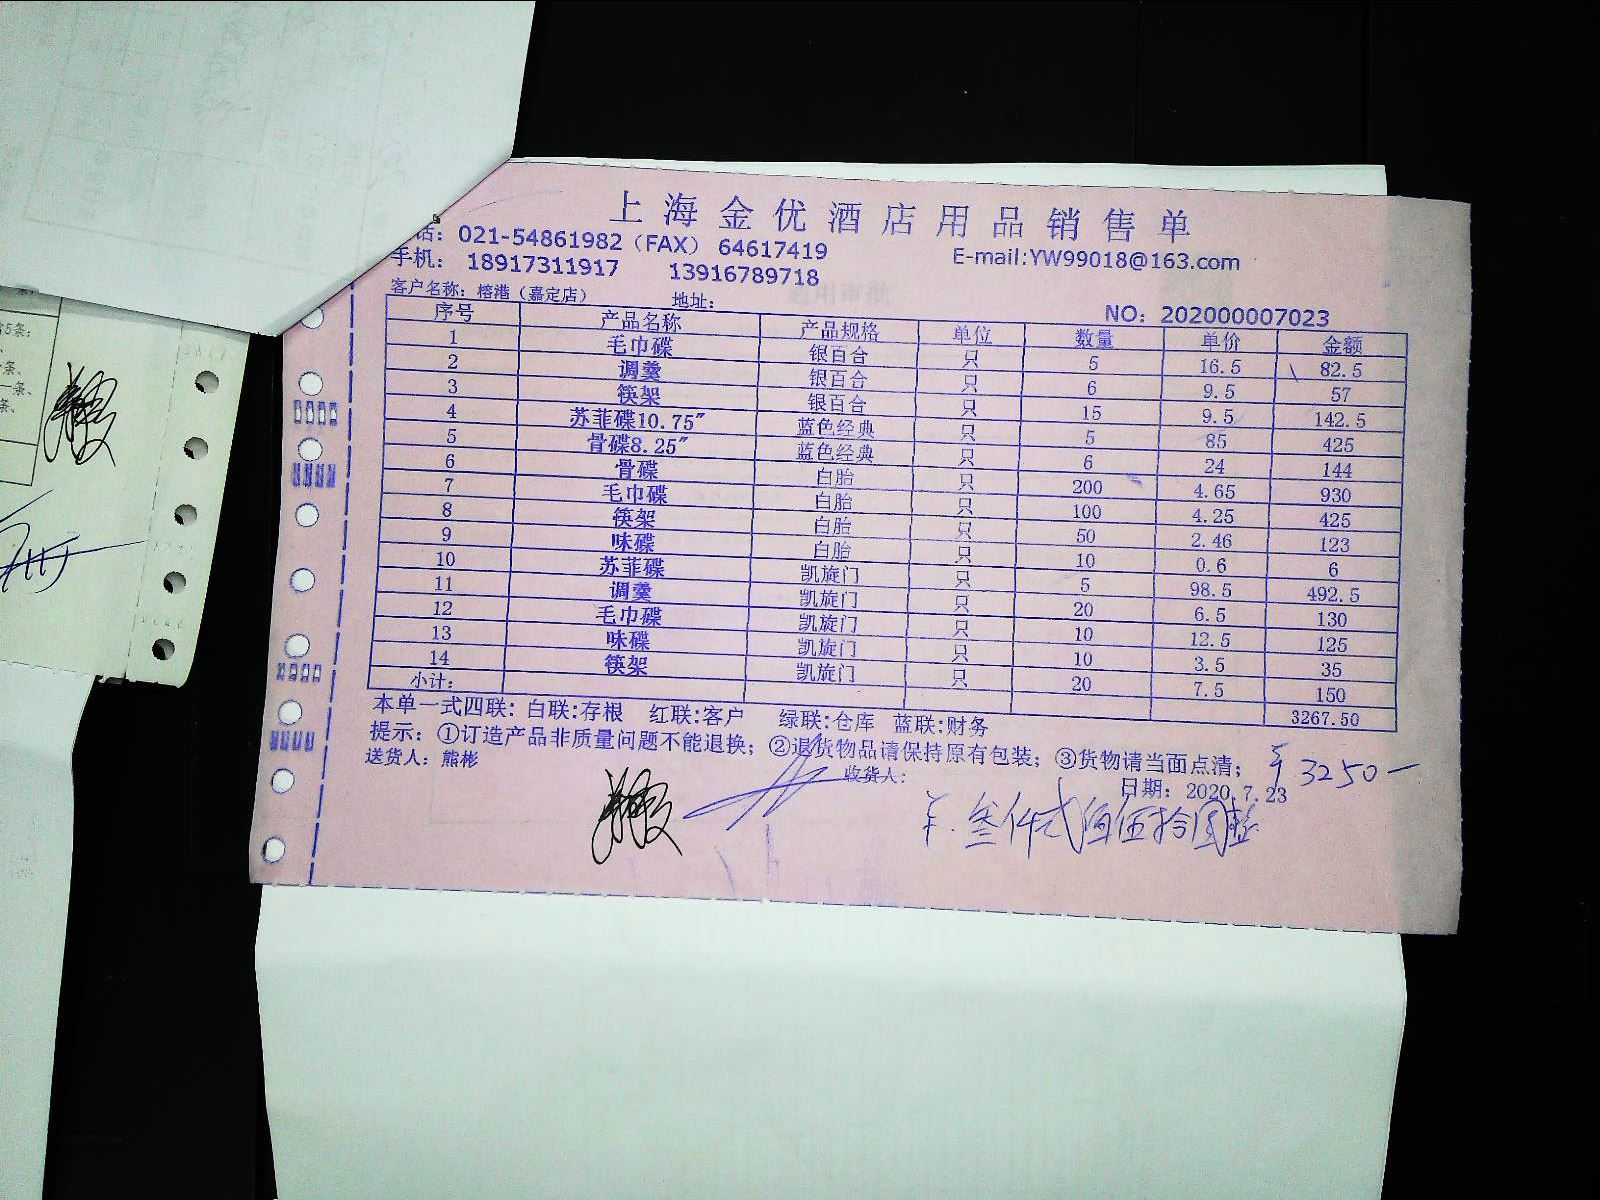 上海金优酒店用品销售单
话：021-54861982（FAX） 64617419 E-mail:YW99018@163.com
手机： 18917311917 13916789718
客户名称：榕港（嘉定店） 地址： NO：202000007023
序号 产品名称 产品规格 单位 数量 单价 金额
1 毛巾碟 银百合 只 5 16.5 82.5
2 调羹 银百合 只 6 9.5 57
3 筷架 银百合 只 15 9.5 142.5
4 苏菲碟10.75″ 蓝色经典 只 5 85 425
5 骨碟8.25″ 蓝色经典 只 6 24 144
6 骨碟 白胎 只 200 4.65 930
7 毛巾碟 白胎 只 100 4.25 425
8 筷架 白胎 只 50 2.46 123
9 味碟 白胎 只 10 0.6 6
10 苏菲碟 凯旋门 只 5 98.5 492.5
11 调羹 凯旋门 只 20 6.5 130
12 毛巾碟 凯旋门 只 10 12.5 125
13 味碟 凯旋门 只 10 3.5 35
14 筷架 凯旋门 只 20 7.5 150
小计： 3267.50
本单一式四联：白联:存根 红联:客户 绿联:仓库 蓝联:财务
提示：①订造产品非质量问题不能退换；②退货物品请保持原有包装；③货物请当面点清；
¥ 3250-
送货人：熊彬 收货人： 日期：2020.7.23
叁仟贰佰伍拾圆整